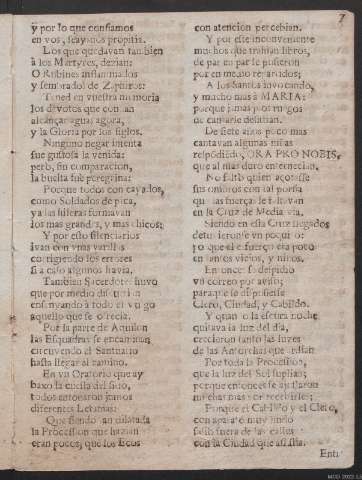 7
ÿ por lo que confiamos
en vos, seays nos propitia.
Los que quedavan tambien
à los Martyres, dezian:
O Rubines inflammados
y sembrados de Zaphiros:
Tened en vuestra memoria
los devotos que
alcançar agua agora,
y la Gloria por los siglos.
Ninguno negar intenta
fue gustosa la venida:
però, sin comparacion,
la buelta fue peregrina:
Porque todos con cayados,
como Soldados de pica,
ya las hileras formavan
los mas grandes, y mas chicos;
Y por esto silenciarios
ivan con vnas varillas
corrigiendo los errores
si a caso algunos havia.
Tambien Sacerdotes huvo
que por medio
enseñando à todo el vulgo
aquello que se ofrecia.
Por la parte de Aquilon
las Esquadras se encaminan
circuyendo el Santuario
hasta llegar al camino.
En vn Oratorio que ay
baxo la
todos entonaron juntos
diferentes Letanias:
Que siendo tan dilatada
la Procession que hazian
eran pocos, que los Ecos
con atencion percebian.
Y por este inconveniente
muchos que trahian libros,
de par en par se pusieron
por en medio repartidos;
A los Santos invocando,
y mucho mas à MARIA:
porque jamas
de cantarle desistian.
De siete años poco mas
cantavan algunas niñas
respõdiẽdo, ORA PRO NOBIS,
que al mas duro enternecian.
No faltò quien açotasse
sus ombros con tal porfia
que las fuerças le faltavan
en la Cruz de Media via.
Siendo en esta Cruz llegados
detuvieronse vn poquito:
en tantos viejos, y niños.
Entonces se despidio
vn correo por aviso;
para que se dispusiesse
Clero, Ciudad, y Cabildo.
Y quando la escura noche
quitava la luz del dia,
crecieron tanto las luzes
de las Antorchas que ardian
Por toda la Procession,
que la luz del Sol suplian;
porque entonces se ajustaron
muchas mas por recebirle;
Porque el Cabildo y el Clero,
con aparato muy lindo
con la Ciudad que assista.
Entr